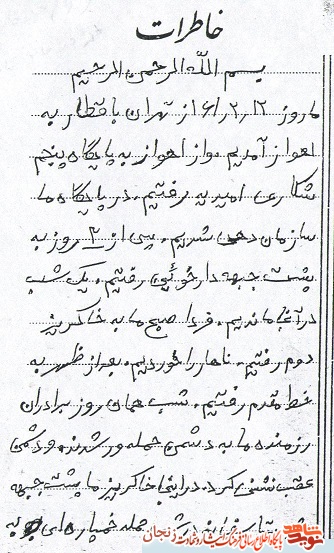 خاطرات
بسم الله الرحمن الرحیم
ما روز ۶۱٫۲٫۱۲ از تهران با قطار به
اهواز آمدیم. و از اهواز به پایگاه پنجم
شکاری امیدیه رفتیم. در پایگاه ما
سازمان دهی شدیم. پس از ۲ روز به
پشت جبهه دارخوئین رفتیم. یک شب
در آنجا ماندیم. فردا صبح ما به خاکریز
دوم رفتیم. ناهار را خوردیم. بعد از ظهر به
خط مقدم رفتیم. شب همان روز برادران
رزمنده ما به دشمن حمله ور شدند. و دشمن
عقب نشینی کرد. در اینجا خاکریز ما پشت جبهه
حمله خمپاره ای به
نوید شاهد
پایگاه اطلاع رسانی فرهنگ ایثار و شهادت زنجان